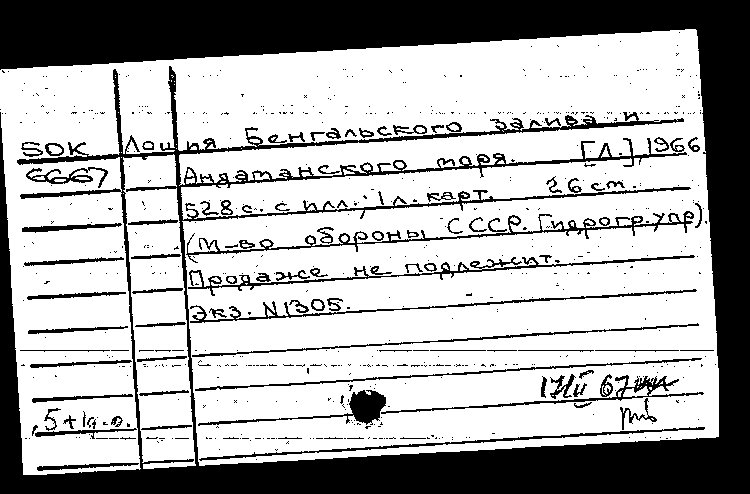 SOK Лоция Бенгальского залива и
6667 Андаманского моря. [Л.], 1966.
528 с. с илл.; 1 л. карт. 26 см.
(М-во обороны СССР. Гидрогр. упр).
Продаже не подлежит.
Экз. N1305.
17/II 67
,5+1д.о.